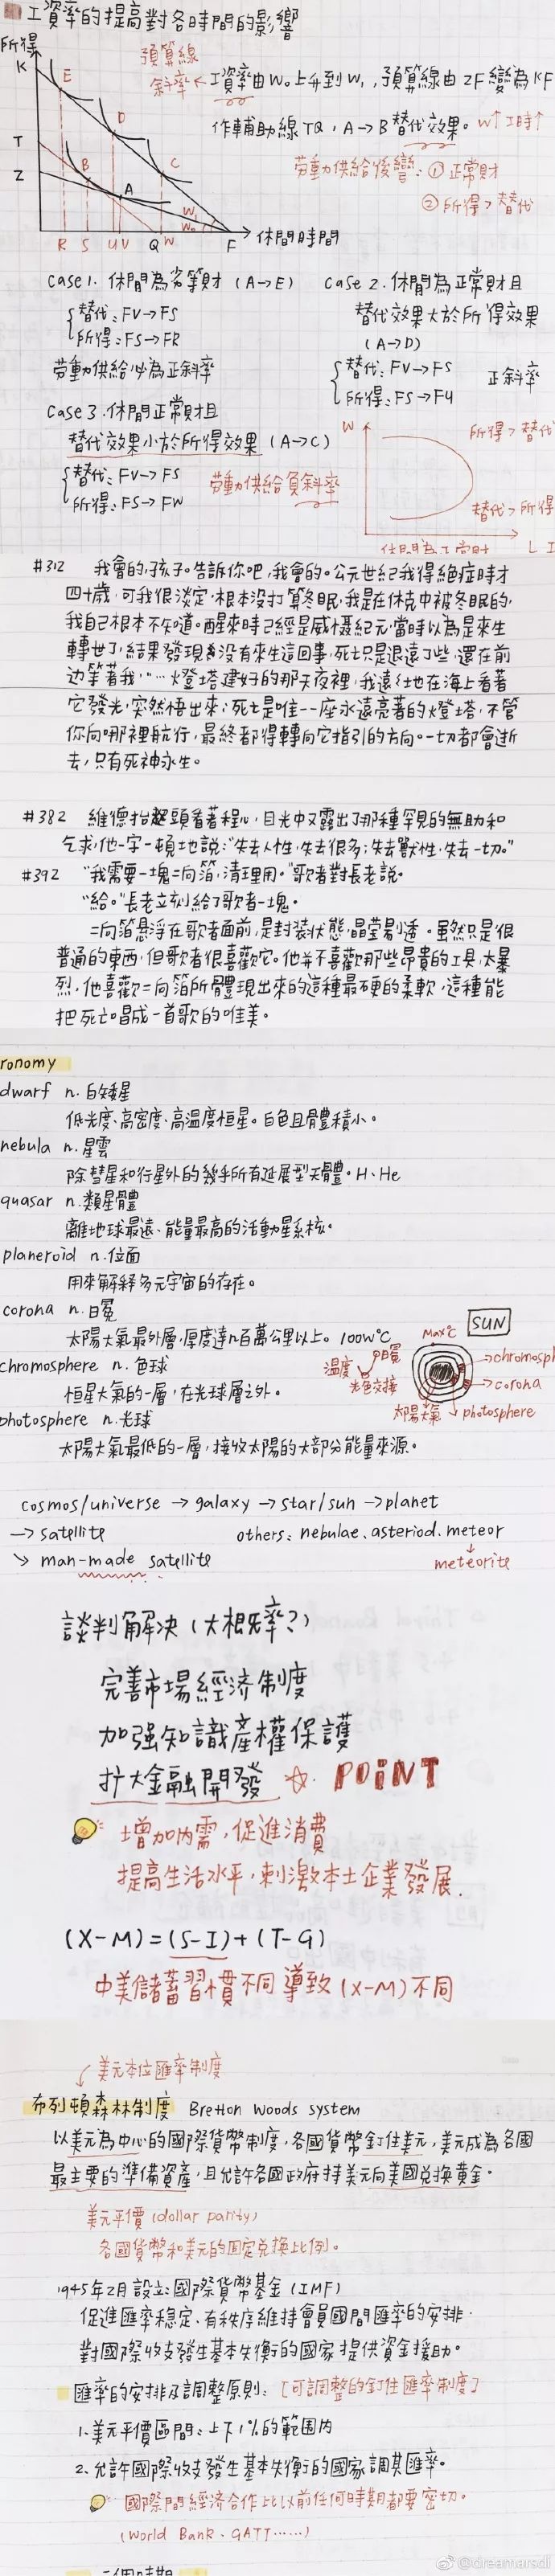 工資率的提高對各時間的影響
所得
K
E
D
C
T
B
Z
A
W₁
W₀
R S U V Q W F
休閒時間
預算線
斜率 ← 工資率由W₀上升到W₁,預算線由ZF變為KF
作輔助線TQ,A→B替代效果。W↑ I時↑
勞動供給後彎:① 正常財
② 所得>替代
case 1. 休閒為劣等財 (A→E)
替代:FV→FS
所得:FS→FR
勞動供給必為正斜率
case 2. 休閒為正常財且
替代效果大於所得效果
(A→D)
替代:FV→FS
所得:FS→FU
正斜率
case 3. 休閒正常財且
替代效果小於所得效果 (A→C)
替代:FV→FS
所得:FS→FW
勞動供給負斜率
W
所得>替代
替代>所得
休閒為正常財
L
#312 我會的,孩子。告訴你吧,我會的。公元世紀我得絕症時才
四十歲,可我很淡定,根本沒打算冬眠,我是在休克中被冬眠的,
我自己根本不知道。醒來時已經是威懾紀元,當時以為是來生
轉世了,結果發現沒有來生這回事,死亡只是退遠了些,還在前
邊等著我……燈塔建好的那天夜裡,我遠遠地在海上看著
它發光,突然悟出來,死亡是唯一一座永遠亮著的燈塔,不管
你向哪裡航行,最終都得轉向它指引的方向。一切都會逝
去,只有死神永生。
#382 維德抬起頭看著程心,目光中又露出了那種罕見的無助和
乞求,他一字一頓地說:“失去人性,失去很多;失去獸性,失去一切。”
#392 “我需要一塊二向箔,清理用。”歌者對長老說。
“給。”長老立刻給了歌者一塊。
二向箔懸浮在歌者面前,是封裝狀態,晶瑩剔透。雖然只是很
普通的東西,但歌者很喜歡它。他並不喜歡那些昂貴的工具,太暴
烈,他喜歡二向箔所體現出來的這種最硬的柔軟,這種能
把死亡唱成一首歌的唯美。
ronomy
dwarf n. 白矮星
低光度、高密度、高溫度恒星。白色且體積小。
nebula n. 星雲
除彗星和行星外的幾乎所有延展型天體。H、He
quasar n. 類星體
離地球最遠、能量最高的活動星系核。
planeroid n. 位面
用來解釋多元宇宙的存在。
corona n. 日冕
太陽大氣最外層,厚度達n百萬公里以上。100w℃
chromosphere n. 色球
恒星大氣的一層,在光球層之外。
photosphere n. 光球
太陽大氣最低的一層,接收太陽的大部分能量來源。
SUN
Max℃
chromosph
corona
photosphere
太陽大氣
溫度
日冕
光色交接
cosmos/universe → galaxy → star/sun → planet
→ satellite others: nebulae. asteriod. meteor
↘ man-made satellite meteorite
談判解決 (大概率?)
完善市場經濟制度
加強知識產權保護
扩大金融開發 ☆. POINT
增加內需,促進消費
提高生活水平,刺激本土企業發展.
(X-M)=(S-I)+(T-G)
中美儲蓄習慣不同導致(X-M)不同
美元本位匯率制度
布列頓森林制度 Bretton Woods system
以美元為中心的國際貨幣制度,各國貨幣釘住美元,美元成為各國
最主要的準備資產,且允許各國政府持美元向美國兌換黃金。
美元平價 (dollar parity)
各國貨幣和美元的固定兌換比例。
1945年2月設立:國際貨幣基金 (IMF)
促進匯率穩定、有秩序維持會員國間匯率的安排.
對國際收支發生基本失衡的國家提供資金援助。
匯率的安排及調整原則:[可調整的釘住匯率制度]
1. 美元平價區間:上下1%的範圍內
2. 允許國際收支發生基本失衡的國家調其匯率。
國際間經濟合作比以前任何時期都要密切。
(World Bank、GATT……)
@dreamarsdl